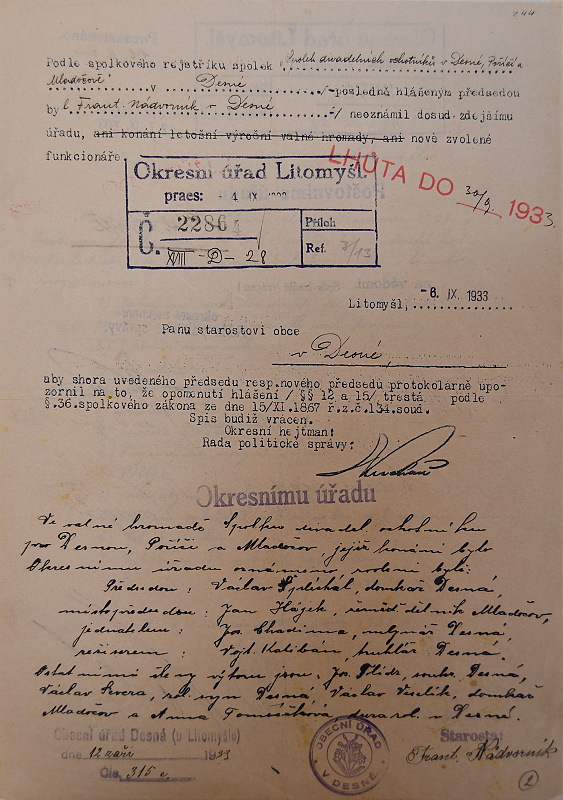 244
Podle spolkového rejstříku spolek "Spolek divadelních ochotníků v Desné, Poříčí a
Mladočově v Desné /-posledně hlášeným předsedou
byl Frant. Nádvorník v Desné -/ neoznámil dosud zdejšímu
úřadu, ani konání letošní výroční valné hromady, ani nově zvolené
funkcionáře.
LHŮTA DO 30/9. 1933.
Okresní úřad Litomyšl.
praes: 4 IX
Č. 22864
Příloh
XVIII - D - 28
Ref. 3/13
Litomyšl, -6. IX. 1933
Panu starostovi obce
v Desné,
aby shora uvedeného předsedu resp.nového předsedu protokolárně upo-
zornil na to, že opomenutí hlášení / §§ 12 a 15/ trestá podle
§.36.spolkového zákona ze dne 15/XI.1867 ř.z.č.134.soud.
Spis budiž vrácen.
Okresní hejtman:
Rada politické správy:
Okresnímu úřadu
Ve valné hromadě Spolku divadel. ochotníků
pro Desnou, Poříčí a Mladočov, jejíž konání bylo
Okresnímu úřadu oznámeno, zvoleni byli:
Předsedou: Václav Šplíchal, domkař Desná,
místopředsedou: Jan Hájek, zeměd. dělník Mladočov,
jednatelem: Jos. Chadima, mlynář Desná,
režiserem: Vojt. Kaliban, truhlář Desná.
Ostatními členy výboru jsou: Jos. Flídr, Desná,
Václav rol. syn Desná, Václav domkař
Mladočov a Anna Tomíšková, dcera rol. v Desné.
Obecní úřad Desná (u Litomyšle)
dne 12 září 1933
Čís. 315 c.
OBECNÍ ÚŘAD V DESNÉ
Starosta:
Frant. Nádvorník
2